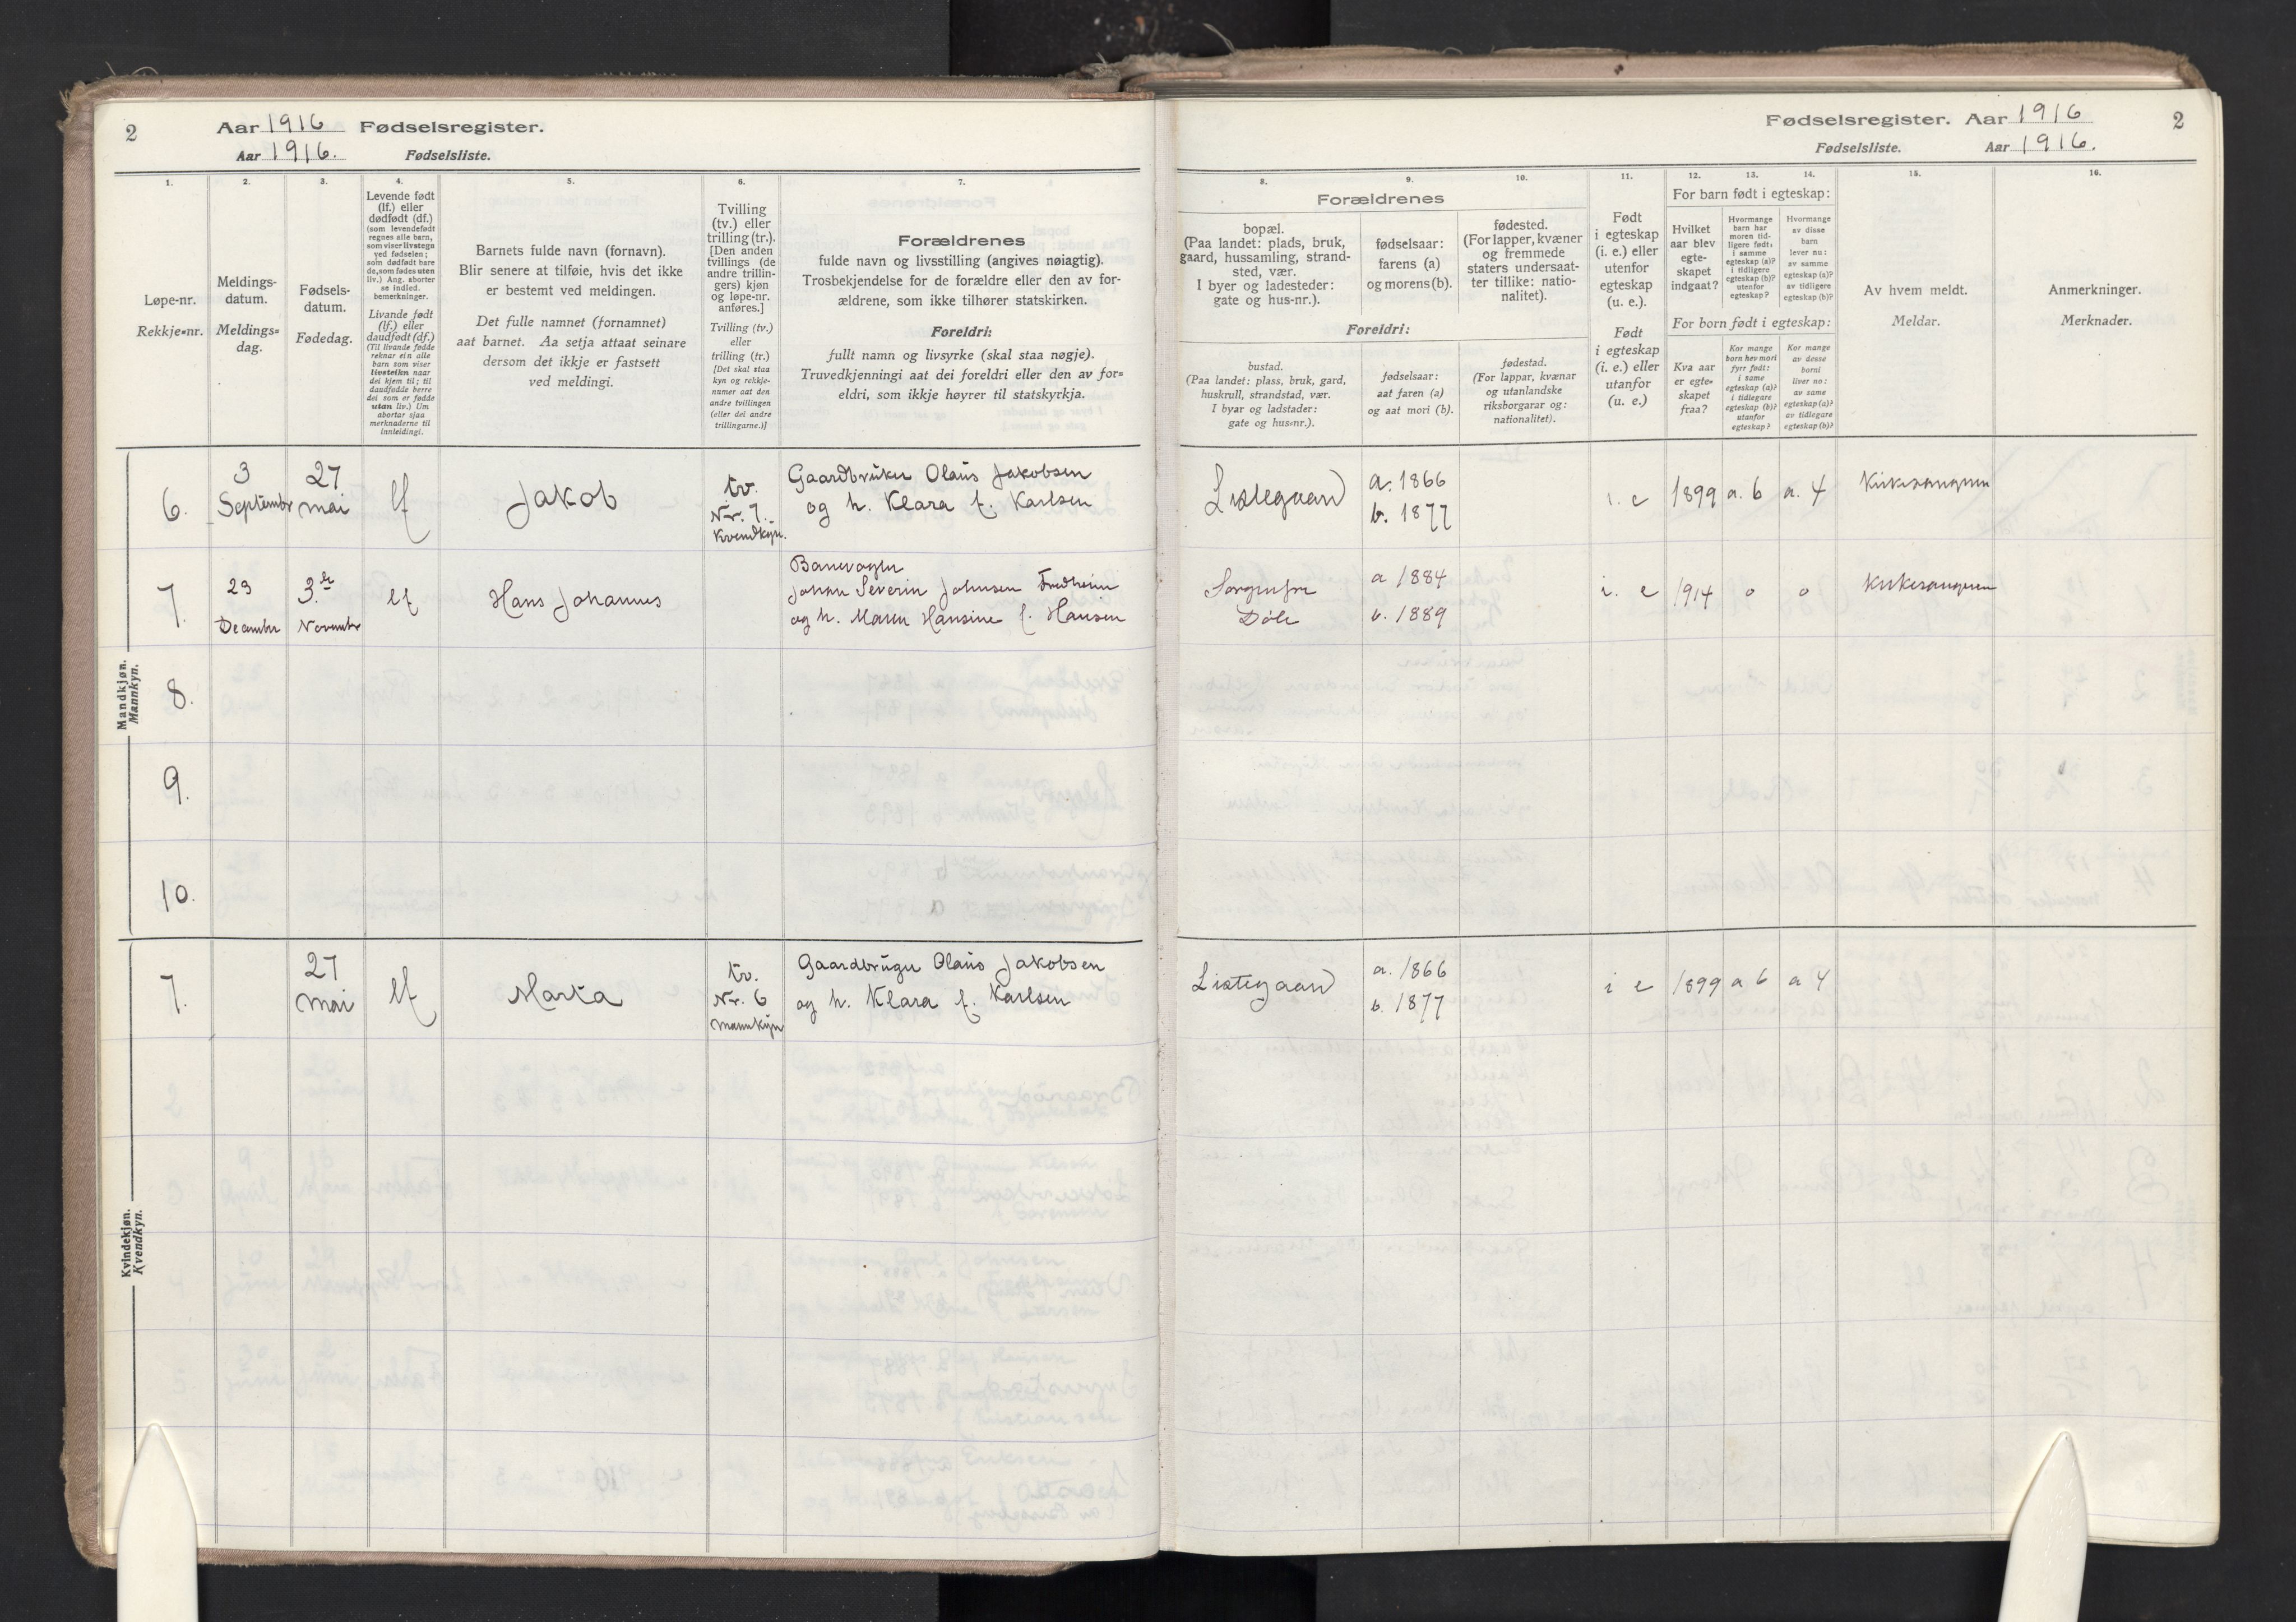 2
Aar 1916 Fødselsregister.
Aar 1916. Fødselsliste.
1.
2.
3.
4.
5.
6.
7.
Løpe-nr.
Rekkje=nr.
Meldings-
datum.
Meldings=
dag.
Fødsels-
datum.
Fødedag.
Levende født
(lf.) eller
dødfødt (df.)
(som levendefødt
regnes alle barn,
som viser livstegn
ved fødselen;
som dødfødt bare
de, som fødes uten
liv.) Ang. aborter
se indled.
bemerkninger.
Livande født
(lf.) eller
daudfødt (df.)
(Til livande fødde
reknar ein alle
barn som viser
livsteikn naar
dei kjem til; til
daudfødde berre
dei som er fødde
utan liv.) Um
abortar sjaa
merknaderne til
innleidingi.
Barnets fulde navn (fornavn).
Blir senere at tilføie, hvis det ikke
er bestemt ved meldingen.
Det fulle namnet (fornamnet)
aat barnet. Aa setja attaat seinare
dersom det ikkje er fastsett
ved meldingi.
Tvilling
(tv.) eller
trilling (tr.).
[Den anden
tvillings (de
andre trillin-
gers) kjøn
og løpe-nr.
anføres.]
Tvilling (tv.)
eller
trilling (tr.)
[Det skal staa
kyn og rekkje-
numer aat den
andre tvillingen
(eller dei andre
trillingarne.)]
Forældrenes
fulde navn og livsstilling (angives nøiagtig).
Trosbekjendelse for de forældre eller den av for-
ældrene, som ikke tilhører statskirken.
Foreldri:
fullt namn og livsyrke (skal staa nøgje).
Truvedkjenningi aat dei foreldri eller den av for=
eldri, som ikkje høyrer til statskyrkja.
Mandkjøn.
Mannkyn.
6.
3
Septembr
27
mai
lf
Jakob
tv.
Nr. 7.
Kvendkjn.
Gaardbruker Olaus Jakobsen
og h. Klara f. Karlsen
7.
29
Decembr
3.
Novembr
lf
Hans Johannes
Banevogter
Johan Severin Johnsen Fredheim
og h. Maren Hansine f. Hansen
8.
9.
10.
Kvindekjøn.
Kvendkyn.
7.
27
mai
lf
Marta
tv.
Nr. 6
mannkjn
Gaardbruger Olaus Jakobsen
og h. Klara f. Karlsen
Fødselsregister. Aar 1916
2
Fødselsliste. Aar 1916.
8.
9.
10.
11.
12.
13.
14.
15.
16.
Forældrenes
bopæl.
(Paa landet: plads, bruk,
gaard, hussamling, strand-
sted, vær.
I byer og ladesteder:
gate og hus-nr.).
fødselsaar:
farens (a)
og morens (b).
fødested.
(For lapper, kvæner
og fremmede
staters undersaat-
ter tillike: natio-
nalitet).
Foreldri:
bustad.
(Paa landet: plass, bruk, gard,
huskrull, strandstad, vær.
I byar og ladstader:
gate og hus=nr.).
fødselsaar:
aat faren (a)
og aat mori (b).
fødestad.
(For lappar, kvænar
og utanlandske
riksborgarar og:
nationalitet).
Født
i egteskap
(i. e.) eller
utenfor
egteskap
(u. e.).
Født
i egteskap
(i. e.) eller
utanfor
(u. e.)
For barn født i egteskap:
Hvilket
aar blev
egte-
skapet
indgaat?
Hvormange
barn har
moren tid-
ligere født:
i samme
egteskap (a)?
i tidligere
egteskap (b)?
utenfor
egteskap?
Hvormange
av disse
barn
lever nu:
av samme
egteskap (a)?
av tidligere
egteskap (b)?
For born født i egteskap:
Kva aar
er egte=
skapet
fraa?
Kor mange
born hev mori
fyrr født:
i same
egteskap (a)?
i tidlegare
egteskap (b)?
utanfor
egteskap?
Kor mange
av desse
borni
liver no:
av same
egteskap (a)?
av tidlegare
egteskap (b)?
Av hvem meldt.
Meldar.
Anmerkninger.
Merknader.
Listegaard
a. 1866
b. 1877
i. e
1899
a. 6
a. 4
Kirkesangeren
Sorgenfri
Døle
a 1884
b. 1889
i. e
1914
o
o
Kirkesangeren
Listegaard
a. 1866
b. 1877
i e
1899
a 6
a 4